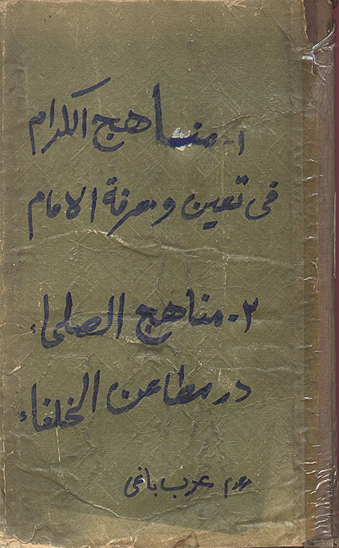 ۱- مناهج الکرام
فی تعین و معرفة الامام
۲- مناهج الصلحاء
در مطاعن الخلفاء
عرب باغی